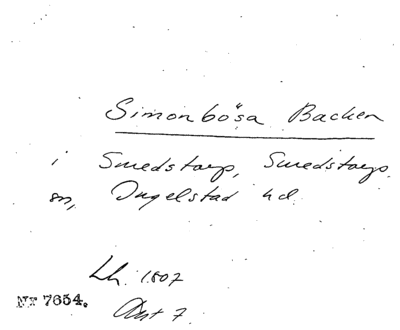 Simonbösa Backen
i Smedstorp, Smedstorps
sn, Ingelstad hd.
Lh. 1807
Akt 7
NY 7654.